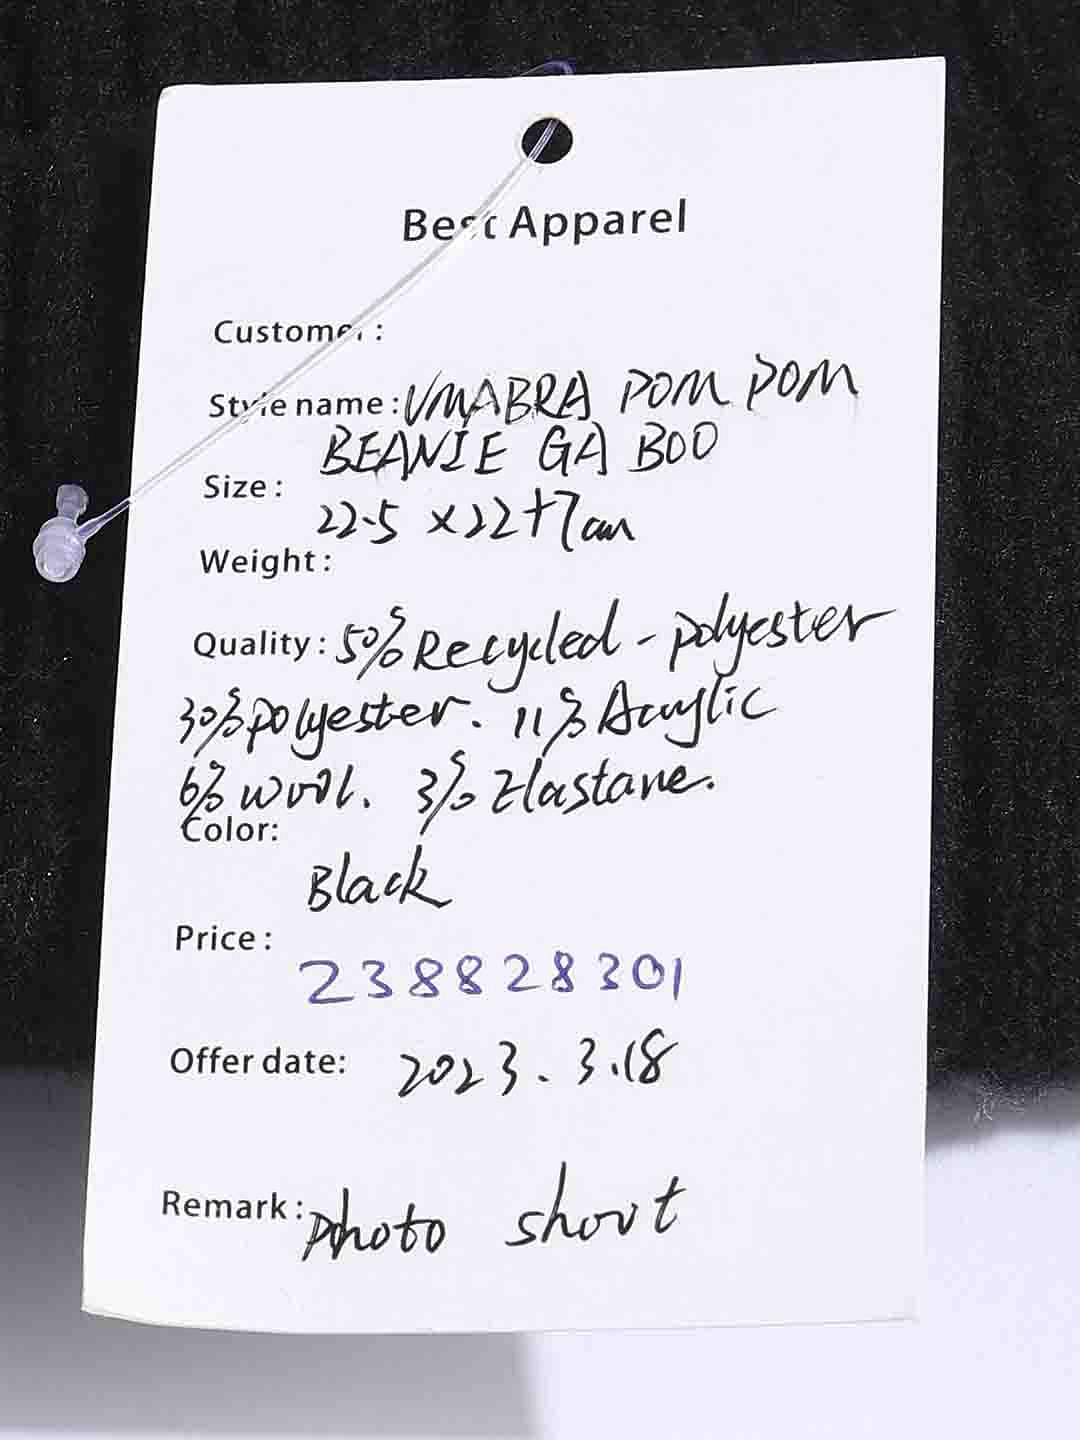 Best Apparel
Customer :
Style name : VMABRA POM POM
BEANIE GA BOO
Size :
22.5 x 22+7cm
Weight :
Quality : 50% Recycled - polyester
30% polyester. 11% Acrylic
6% wool. 3% Elastane.
Color:
Black
Price :
238828301
Offer date: 2023.3.18
Remark : photo shoot